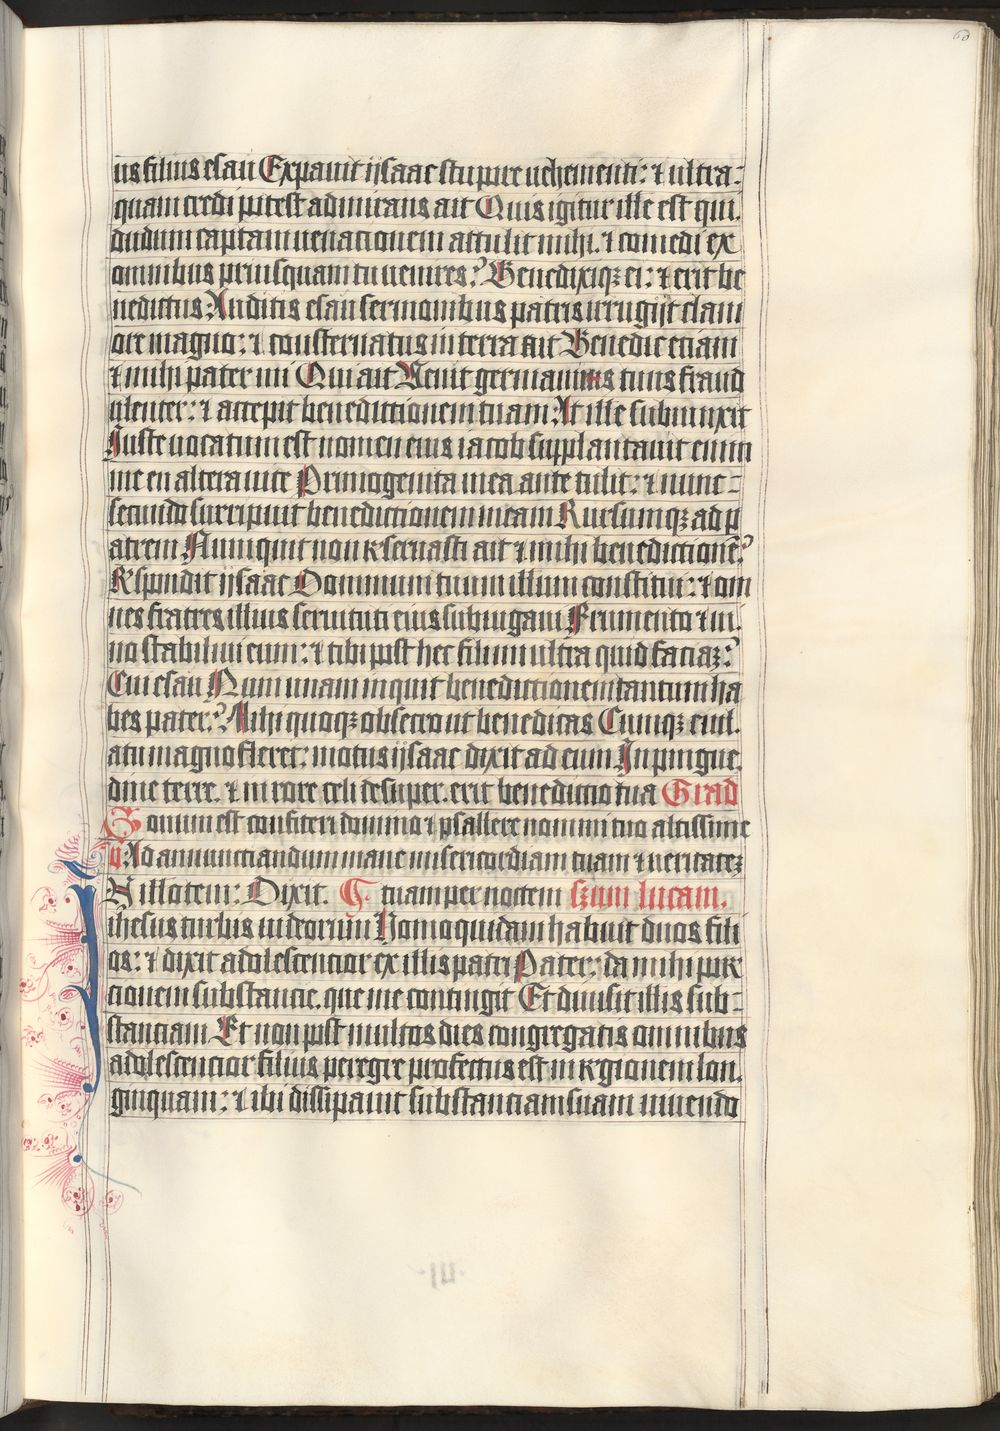 60
us filius esau Expauit ijsaac stupore uehementi: ⁊ ultra-
quam credi potest admirans ait Quis igitur ille est qui
dudum captam uenationem attulit mihi. ⁊ comedi ex
omnibus priusquam tu uenires? Benedixiqꝫ ei: ⁊ erit be
nedictus: Auditis esau sermonibus patris irrugijt clam
ore magno: ⁊ consternatus in terra ait Benedic etiam
⁊ mihi pater mi Qui ait Uenit germanus tuus fraud
ulenter: ⁊ accepit benedictionem tuam: At ille subiunxit
Juste uocatum est nomen eius iacob supplantauit enim
me en altera uice Primogenita mea ante tulit: ⁊ nunc-
secundo surripuit benedictionem meam Rursumqꝫ ad p
atrem Numquit non reseruasti ait ⁊ mihi benedictionē?
Respondit ijsaac Dominum tuum illum constitui: ⁊ om
nes fratres illius seruituti eius subiugaui Frumento ⁊ ui.
no stabiliui eum: ⁊ tibi post hec fili mi ultra quid faciaꝫ?
Cui esau Num unam inquit benedictionem tantum ha
bes pater? Mihi quoqꝫ obsecro ut benedicas Cumqꝫ eiul.
atu magno fleret: motus ijsaac dixit ad eum In pingue.
dine terre. ⁊ in rore celi desuper. erit benedictio tua Grad
Bonum est confiteri domino ⁊ psallere nomini tuo altissime
v Ad annunciandum mane misericordiam tuam ⁊ ueritateꝫ
N illo tem: Dixit. tuam per noctem scd̄m lucam.
ihesus turbis iudeorum Homo quidam habuit duos fili
os: ⁊ dixit adolescencior ex illis patri Pater: da mihi por
cionem substancie. que me contingit Et diuisit illis sub-
stanciam Et non post multos dies congregatis omnibus
adolescencior filius peregre profectus est in regionem lon.
ginquam: ⁊ ibi dissipauit substanciam suam uiuendo